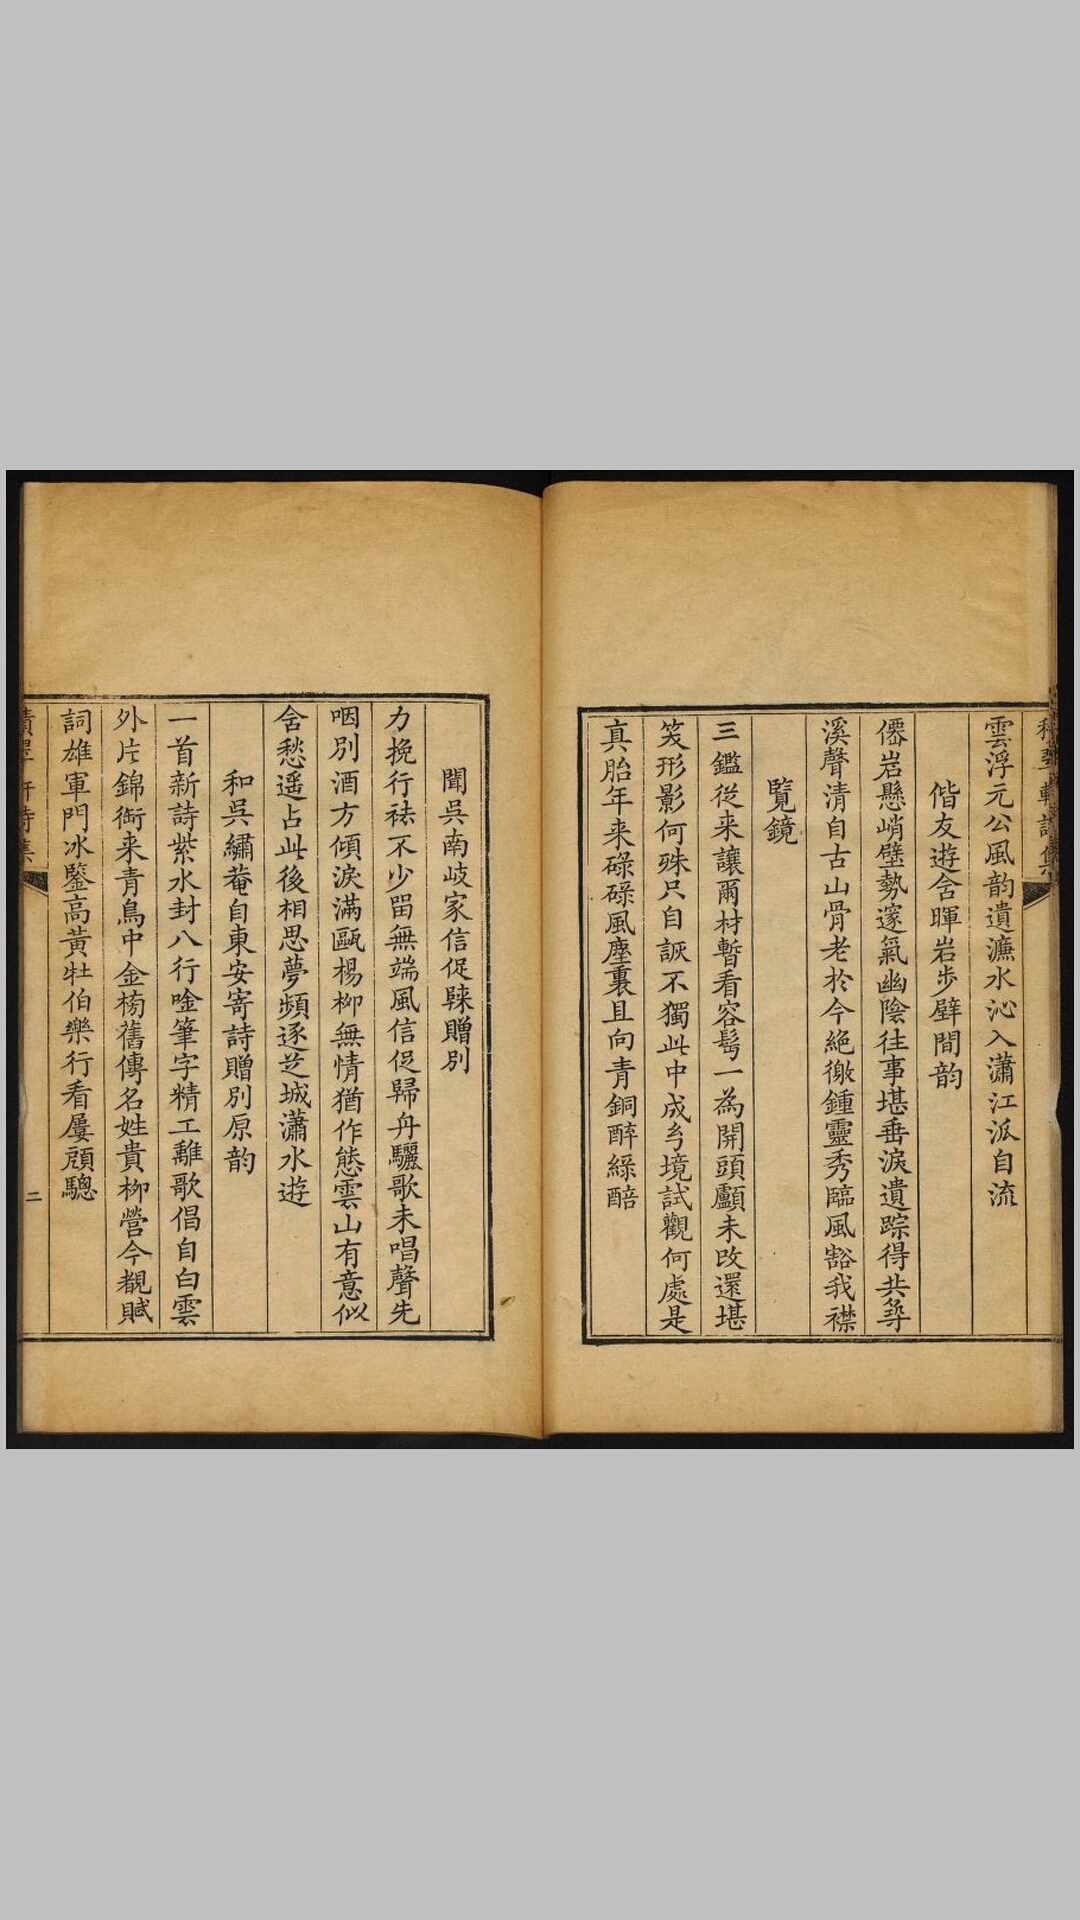 雲浮元公風韵遺濂水沁入瀟江泒自流
偕友遊含暉岩步壁間韵
僊岩懸峭壁勢邃氣幽陰往事堪垂淚遺踪得共尋
溪聲清自古山骨老於今絕徼鍾靈秀臨風豁我襟
覧鏡
三鑑從来讓爾材暫看容髩一為開頭顱未改還堪
笑形影何殊只自詼不獨此中成幻境試觀何處是
真胎年来碌碌風塵裏且向青銅醉綠醅
聞吳南岐家信促歸贈別
力挽行袪不少留無端風信促歸舟驪歌未唱聲先
咽別酒方傾淚滿甌楊柳無情猶作態雲山有意似
含愁遥占此後相思夢頻逐芝城瀟水遊
和吳繡菴自東安寄詩贈別原韵
一首新詩紫水封八行唫筆字精工離歌倡自白雲
外片錦銜来青鳥中金榜舊傳名姓貴柳營今覩賦
詞雄軍門冰鋻高黃牡伯樂行看屢頋驄
二